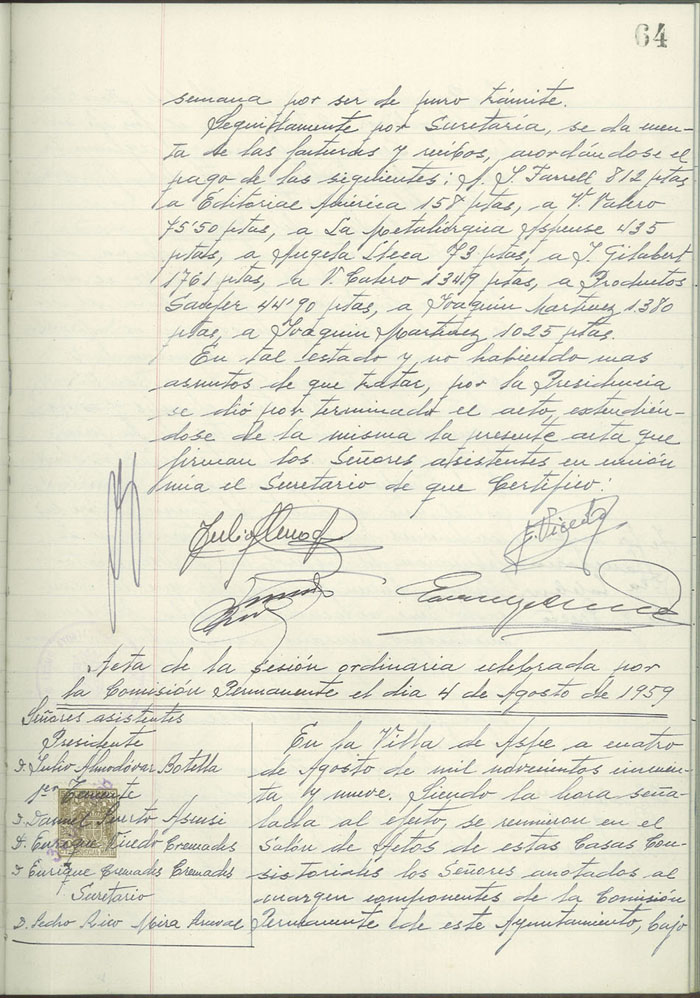 64
semana por ser de puro trámite.
Seguidamente por Secretaría, se da cuen-
ta de las facturas y recibos, acordándose el
pago de las siguientes; A. S Farrell 812 ptas
a Editorial América 158 ptas, a V. Valero
75'50 ptas, a La Metalúrgica Aspense 435
ptas, a Angela 73 ptas, a J. Gilabert
1761 ptas, a V. Calero 1349 ptas, a Productos
Samper 44'90 ptas, a Joaquin Martinez 1380
ptas, a Joaquin Martinez 1025 ptas.
En tal estado y no habiendo mas
asuntos de que tratar, por la Presidencia
se dió por terminado el acto, extendién-
dose de la misma la presente acta que
firman los Señores asistentes en unión
mia el Secretario de que Certifico:
Julio Almod
E. Vicedo
Acta de la sesión ordinaria celebrada por
la Comisión Permanente el dia 4 de Agosto de 1959
Señores asistentes
Presidente
D. Julio Almodóvar Botella
1er Teniente
D. Daniel Puerto Asensi
D. Enrique Vicedo Cremades
D Enrique Cremades Cremades
Secretario
D. Pedro Rico Mira
En la Villa de Aspe a cuatro
de Agosto de mil novecientos cincuen-
ta y nueve. Siendo la hora seña-
lada al efecto, se reunieron en el
Salón de Actos de estas Casas Con-
sistoriales los Señores anotados al
margen componentes de la Comisión
Permanente de este Ayuntamiento, bajo